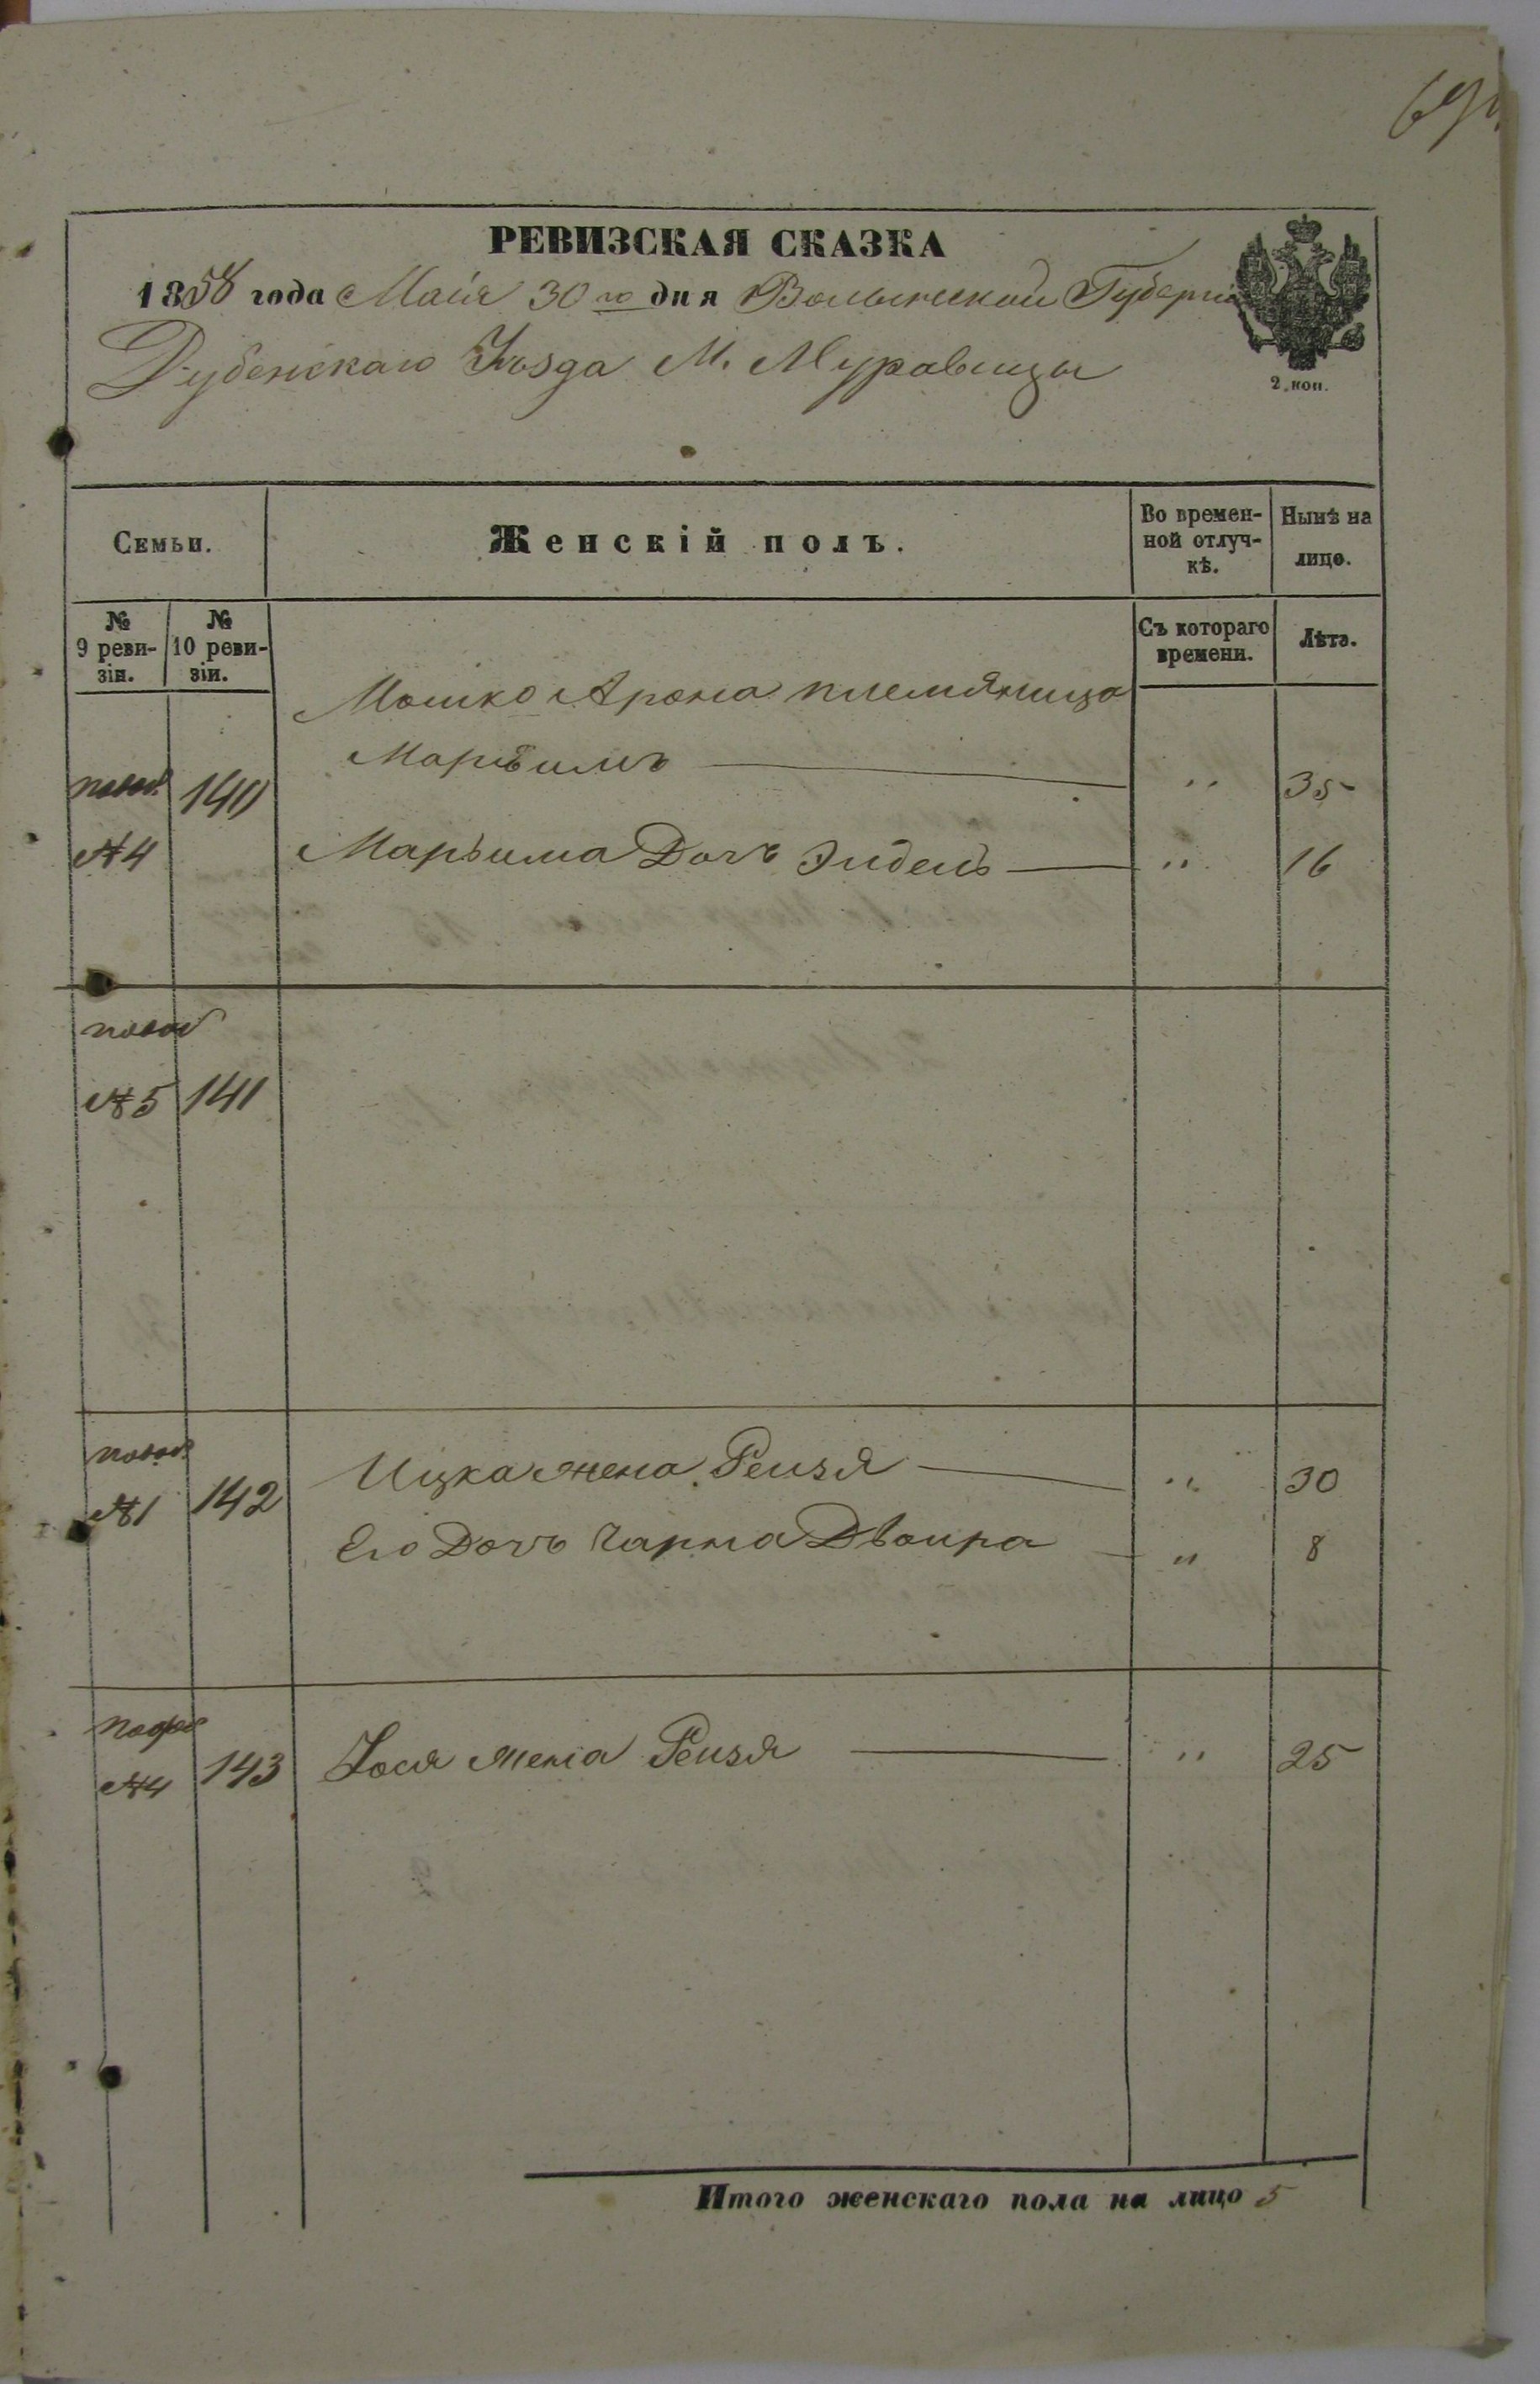 РЕВИЗСКАЯ СКАЗКА
1858 года Маія 30го дня Волынской Губерніи
Дубенскаго Уѣзда М. Муравицы
2 коп.
Семьи.
Женскій полъ.
Во времен-
ной отлуч-
кѣ.
Нынѣ на
лицо.
№
9 реви-
зіи.
№
10 реви-
зіи.
Съ котораго
времени.
Лѣта.
Мошко Арона племяница
Марьимъ — " 35
140
№4 Марьима Дочь Эйдель — " 16
№5 141
№1 142 Ицка жена Рейзя — " 30
Его Дочь Чарна Двойра — " 8
№4 143 Іося жена Рейзя — " 25
Итого женскаго пола на лицо 5